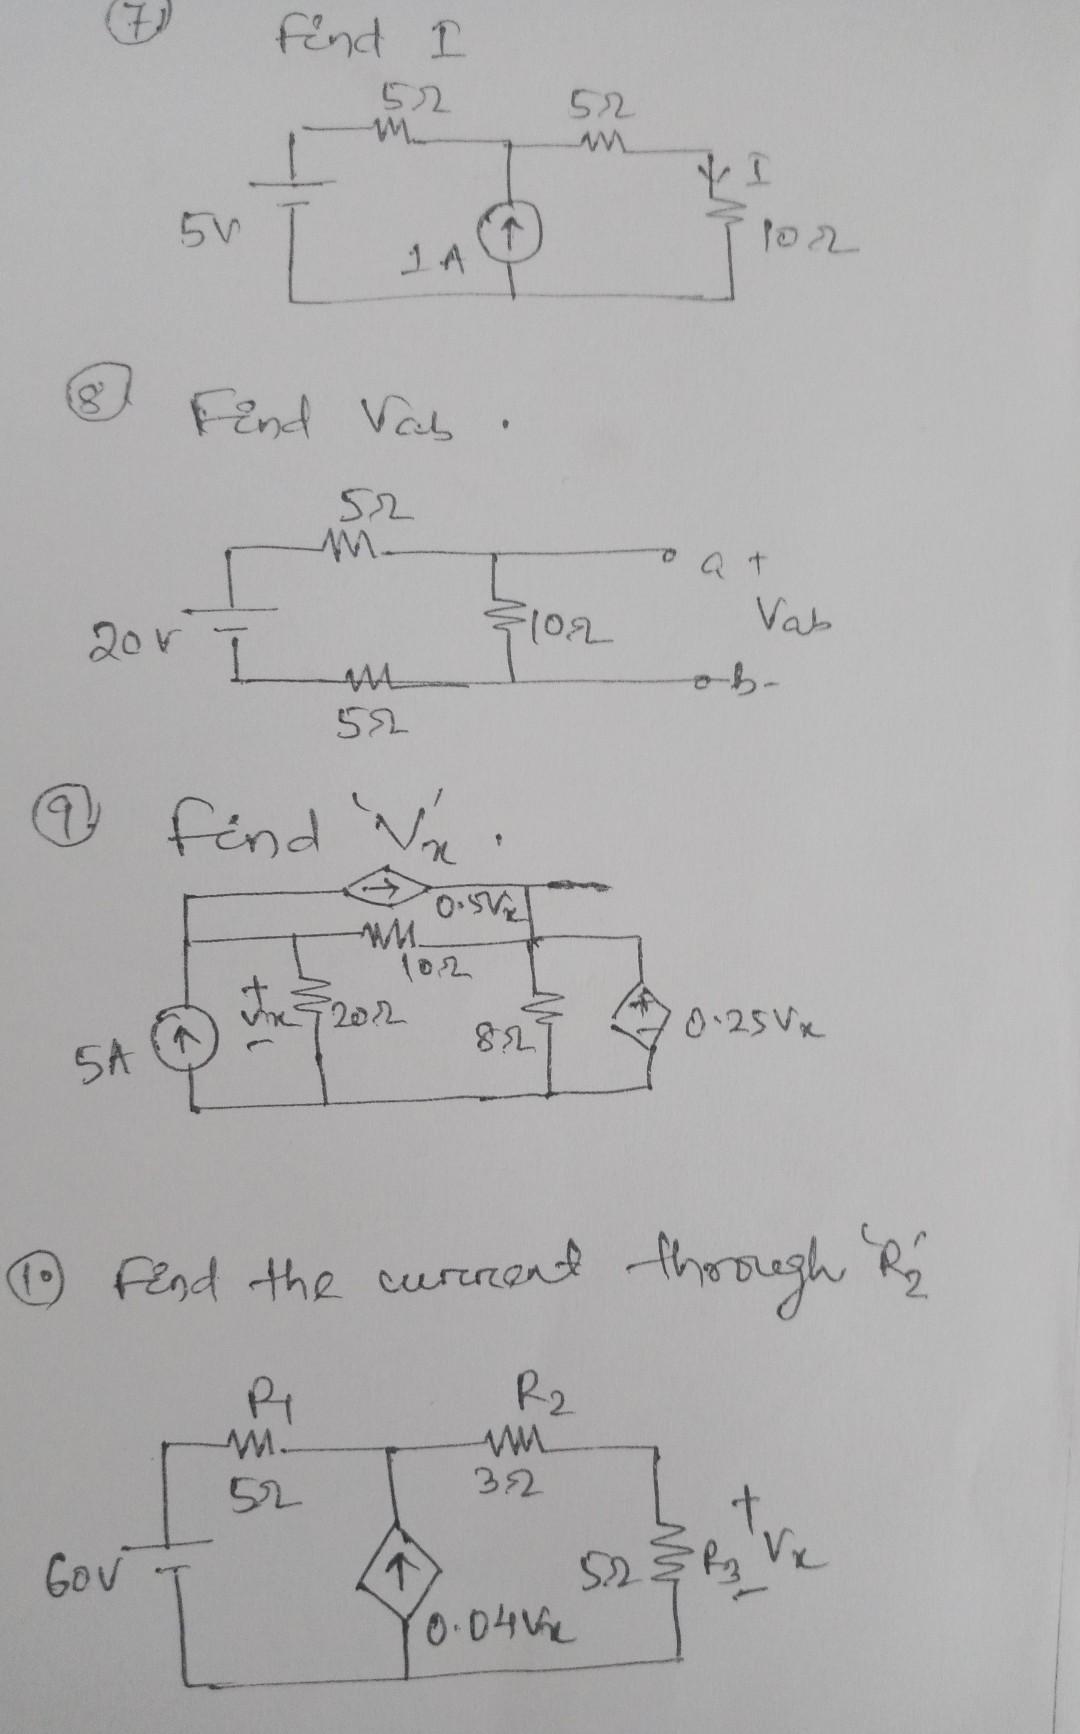 7
Find I
5Ω 5Ω
I
5V
1A
10Ω
8 Find Vab.
5Ω
a +
20V
10Ω
Vab
b -
5Ω
9 find 'Vx'.
0.5Vx
10Ω
+
Vx 20Ω
-
5A
8Ω
+
-
0.25Vx
10 Find the current through 'R2'
R1 R2
5Ω 3Ω
+
60V
5Ω R3 Vx
-
0.04Vx